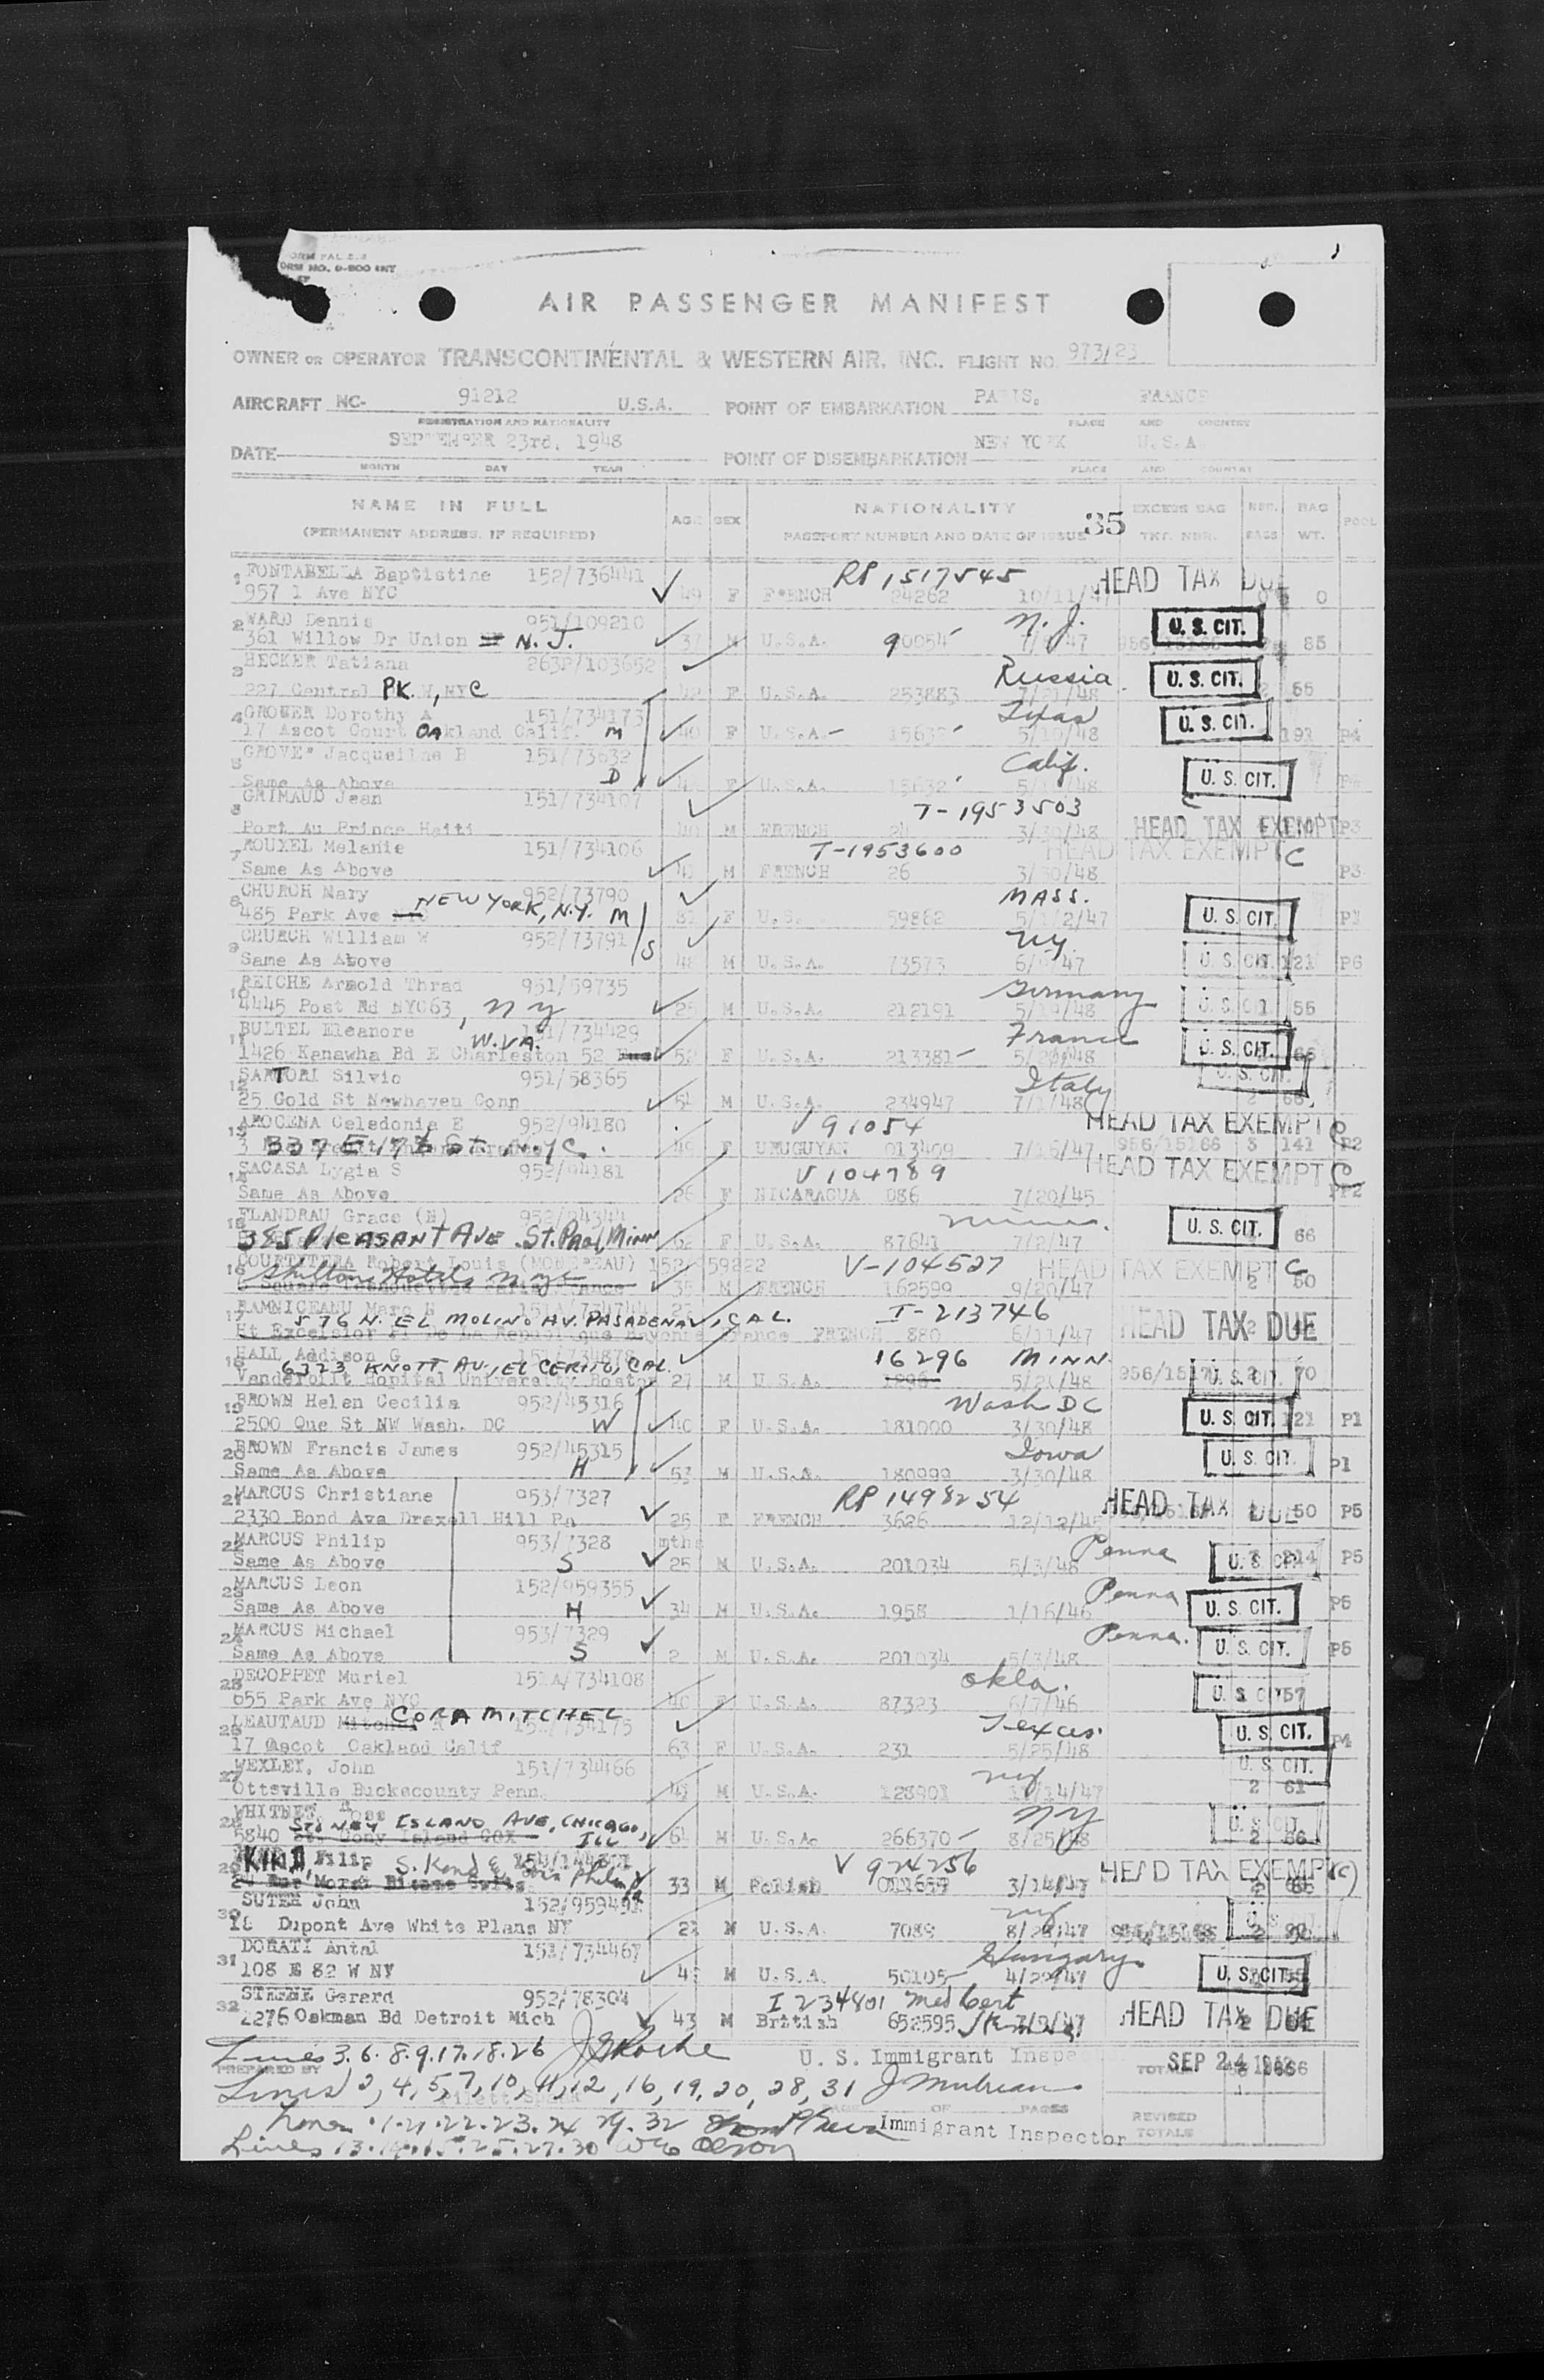 FORM NO. 0-800 INT
AIR PASSENGER MANIFEST
OWNER OR OPERATOR TRANSCONTINENTAL & WESTERN AIR, INC. FLIGHT NO. 973/23
AIRCRAFT NC- 91212 U.S.A. POINT OF EMBARKATION PARIS, FRANCE
REGISTRATION AND NATIONALITY PLACE AND COUNTRY
DATE SEPTEMBER 23rd, 1948 POINT OF DISEMBARKATION NEW YORK U.S.A
MONTH DAY YEAR PLACE AND COUNTRY
NAME IN FULL AGE SEX NATIONALITY EXCESS BAG NBR. BAG POOL
(PERMANENT ADDRESS, IF REQUIRED) PASSPORT NUMBER AND DATE OF ISSUE 35 TKT. NBR. PASS WT.
1 FONTABELLA Baptistine 152/736441 RP 1517545 HEAD TAX DUE
957 1 Ave NYC 49 F FRENCH 24262 10/11/47 0 0
2 WARD Dennis 951/109210 N.J. U.S. CIT.
361 Willow Dr Union N.J. 37 M U.S.A. 90054 7/ /47 85
3 HECKER Tatiana 2632/103652 Russia U.S. CIT.
227 Central PK. W, NYC 42 F U.S.A. 253883 7/21/48 2 55
4 GROWER Dorothy A 151/734173 Texas U.S. CIT.
17 Ascot Court Oakland Calif. M 40 F U.S.A 15632 5/10/48 191 P4
5 Jacqueline B 151/73632 Calif. U.S. CIT.
Same As Above D F U.S.A. 15632 /48
6 GRIMAUD Jean 151/734107 T-1953503
Port Au Prince Haiti 40 M FRENCH 24 3/30/48 HEAD TAX EXEMPT P3
7 ROUXEL Melanie 151/734106 T-1953600 HEAD TAX EXEMPT C
Same As Above 41 M FRENCH 26 3/30/48 P3
8 CHURCH Mary 952/73790 MASS.
485 Park Ave NYC NEW YORK, N.Y. M F U.S. 59862 U.S. CIT.
9 CHURCH William W 952/73791 S N.Y.
Same As Above 48 M U.S.A. 73573 6/ /47 U.S. CIT. 121 P6
10 REICHE Arnold Thrad 951/59735 Germany
4445 Post Rd NYC63, N Y 25 M U.S.A. 212191 5/19/48 U.S. CIT. 55
11 BULTEL Eleanore 151/734429 W.VA. France
1426 Kanawha Bd E Charleston 52 F U.S.A. 213381 U.S. CIT.
12 SARTORI Silvio 951/58365 Italy U.S. CIT.
25 Gold St Newhaven Conn 54 M U.S.A. 234947 7/1/48 2 66
13 AROCENA Celedonia E 952/94180 V 91054 HEAD TAX EXEMPT C
337 E 17 St. NYC. 49 F URUGUYAN 013409 7/16/47 956/15166 3 141 P2
14 SACASA Lygia S 952/94181 V 104789 HEAD TAX EXEMPT C
Same As Above 26 F NICARAGUA 086 7/20/45 PP2
15 FLANDRAU Grace (H) 952/94344 Minn. U.S. CIT.
385 PLEASANT AVE. ST. PAUL, MINN F U.S.A. 87641 7/2/47 66
16 Robert Louis 59222 V-104527 HEAD TAX EXEMPT C
35 M FRENCH 162599 9/20/47 2 50
17 RAMNICEANU Marc H I-213746
576 N. EL MOLINO AV. PASADENA, CAL. FRENCH 880 6/11/47 HEAD TAX DUE
18 HALL Addison G 151/734878 16296 MINN.
6323 KNOTT AV., EL CERITO, CAL.
Vanderbilt Hopital University Boston 27 M U.S.A. 5/20/48 U.S. CIT. 70
19 BROWN Helen Cecilia 952/45316 Wash DC
2500 Que St NW Wash. DC W 40 F U.S.A. 181000 3/30/48 U.S. CIT. 121 P1
20 BROWN Francis James 952/45315 Iowa U.S. CIT.
Same As Above H 53 M U.S.A. 180999 3/30/48 P1
21 MARCUS Christiane 953/7327 RP 1498254 HEAD TAX DUE
2330 Bond Ave Drexell Hill Pa 25 F FRENCH 3626 12/12/45 50 P5
22 MARCUS Philip 953/7328 mths Penna
Same As Above S 25 M U.S.A. 201034 5/3/48 U.S. CIT. 214 P5
23 MARCUS Leon 152/959355 Penna
Same As Above H 34 M U.S.A. 1958 1/16/46 U.S. CIT. P5
24 MARCUS Michael 953/7329 Penna.
Same As Above S 2 M U.S.A. 201034 5/3/48 U.S. CIT. P5
25 DECOPPET Muriel 151A/734108 Okla.
655 Park Ave NYC 40 F U.S.A. 87323 6/7/46 U.S. CIT. 57
26 LEAUTAUD CORA MITCHEL 151/734175 Texas.
17 Ascot Oakland Calif 63 F U.S.A. 231 5/25/48 U.S. CIT. P4
27 WEXLEY, John 151/734466 NY U.S. CIT.
Ottsville Buckscounty Penn. M U.S.A. 128901 /14/47 2 61
28 WHITNEY, NY
5840 STONEY ISLAND AVE, CHICAGO, ILL 64 M U.S.A. 266370 8/25/48 U.S. CIT. 2 66
29 KIND, Filip V 924256
33 M Polish 011659 3/14/47 HEAD TAX EXEMPT (C)
30 SUTER John 152/959492 NY
18 Dupont Ave White Plans NY 21 M U.S.A. 7089 8/28/47
31 DORATI Antal 151/734467 Hungary
108 E 82 W NY M U.S.A. 50105 4/29/47 U.S. CIT.
32 STEENE Gerard 952/78304 I 234801 Med Cert
2276 Oakman Bd Detroit Mich 43 M British 652595 HEAD TAX DUE
Lines 3.6.8.9.17.18.26 J Roche U.S. Immigrant Inspe
PREPARED BY TOTALS SEP 24
Lines 2, 4, 5, 7, 10, 11, 12, 16, 19, 20, 28, 31 J Mulrean
OF PAGES REVISED
Lines 1.21.22.23.24 29.32 Immigrant Inspector TOTALS
Lines 13.14.15.25.27.30 Olson